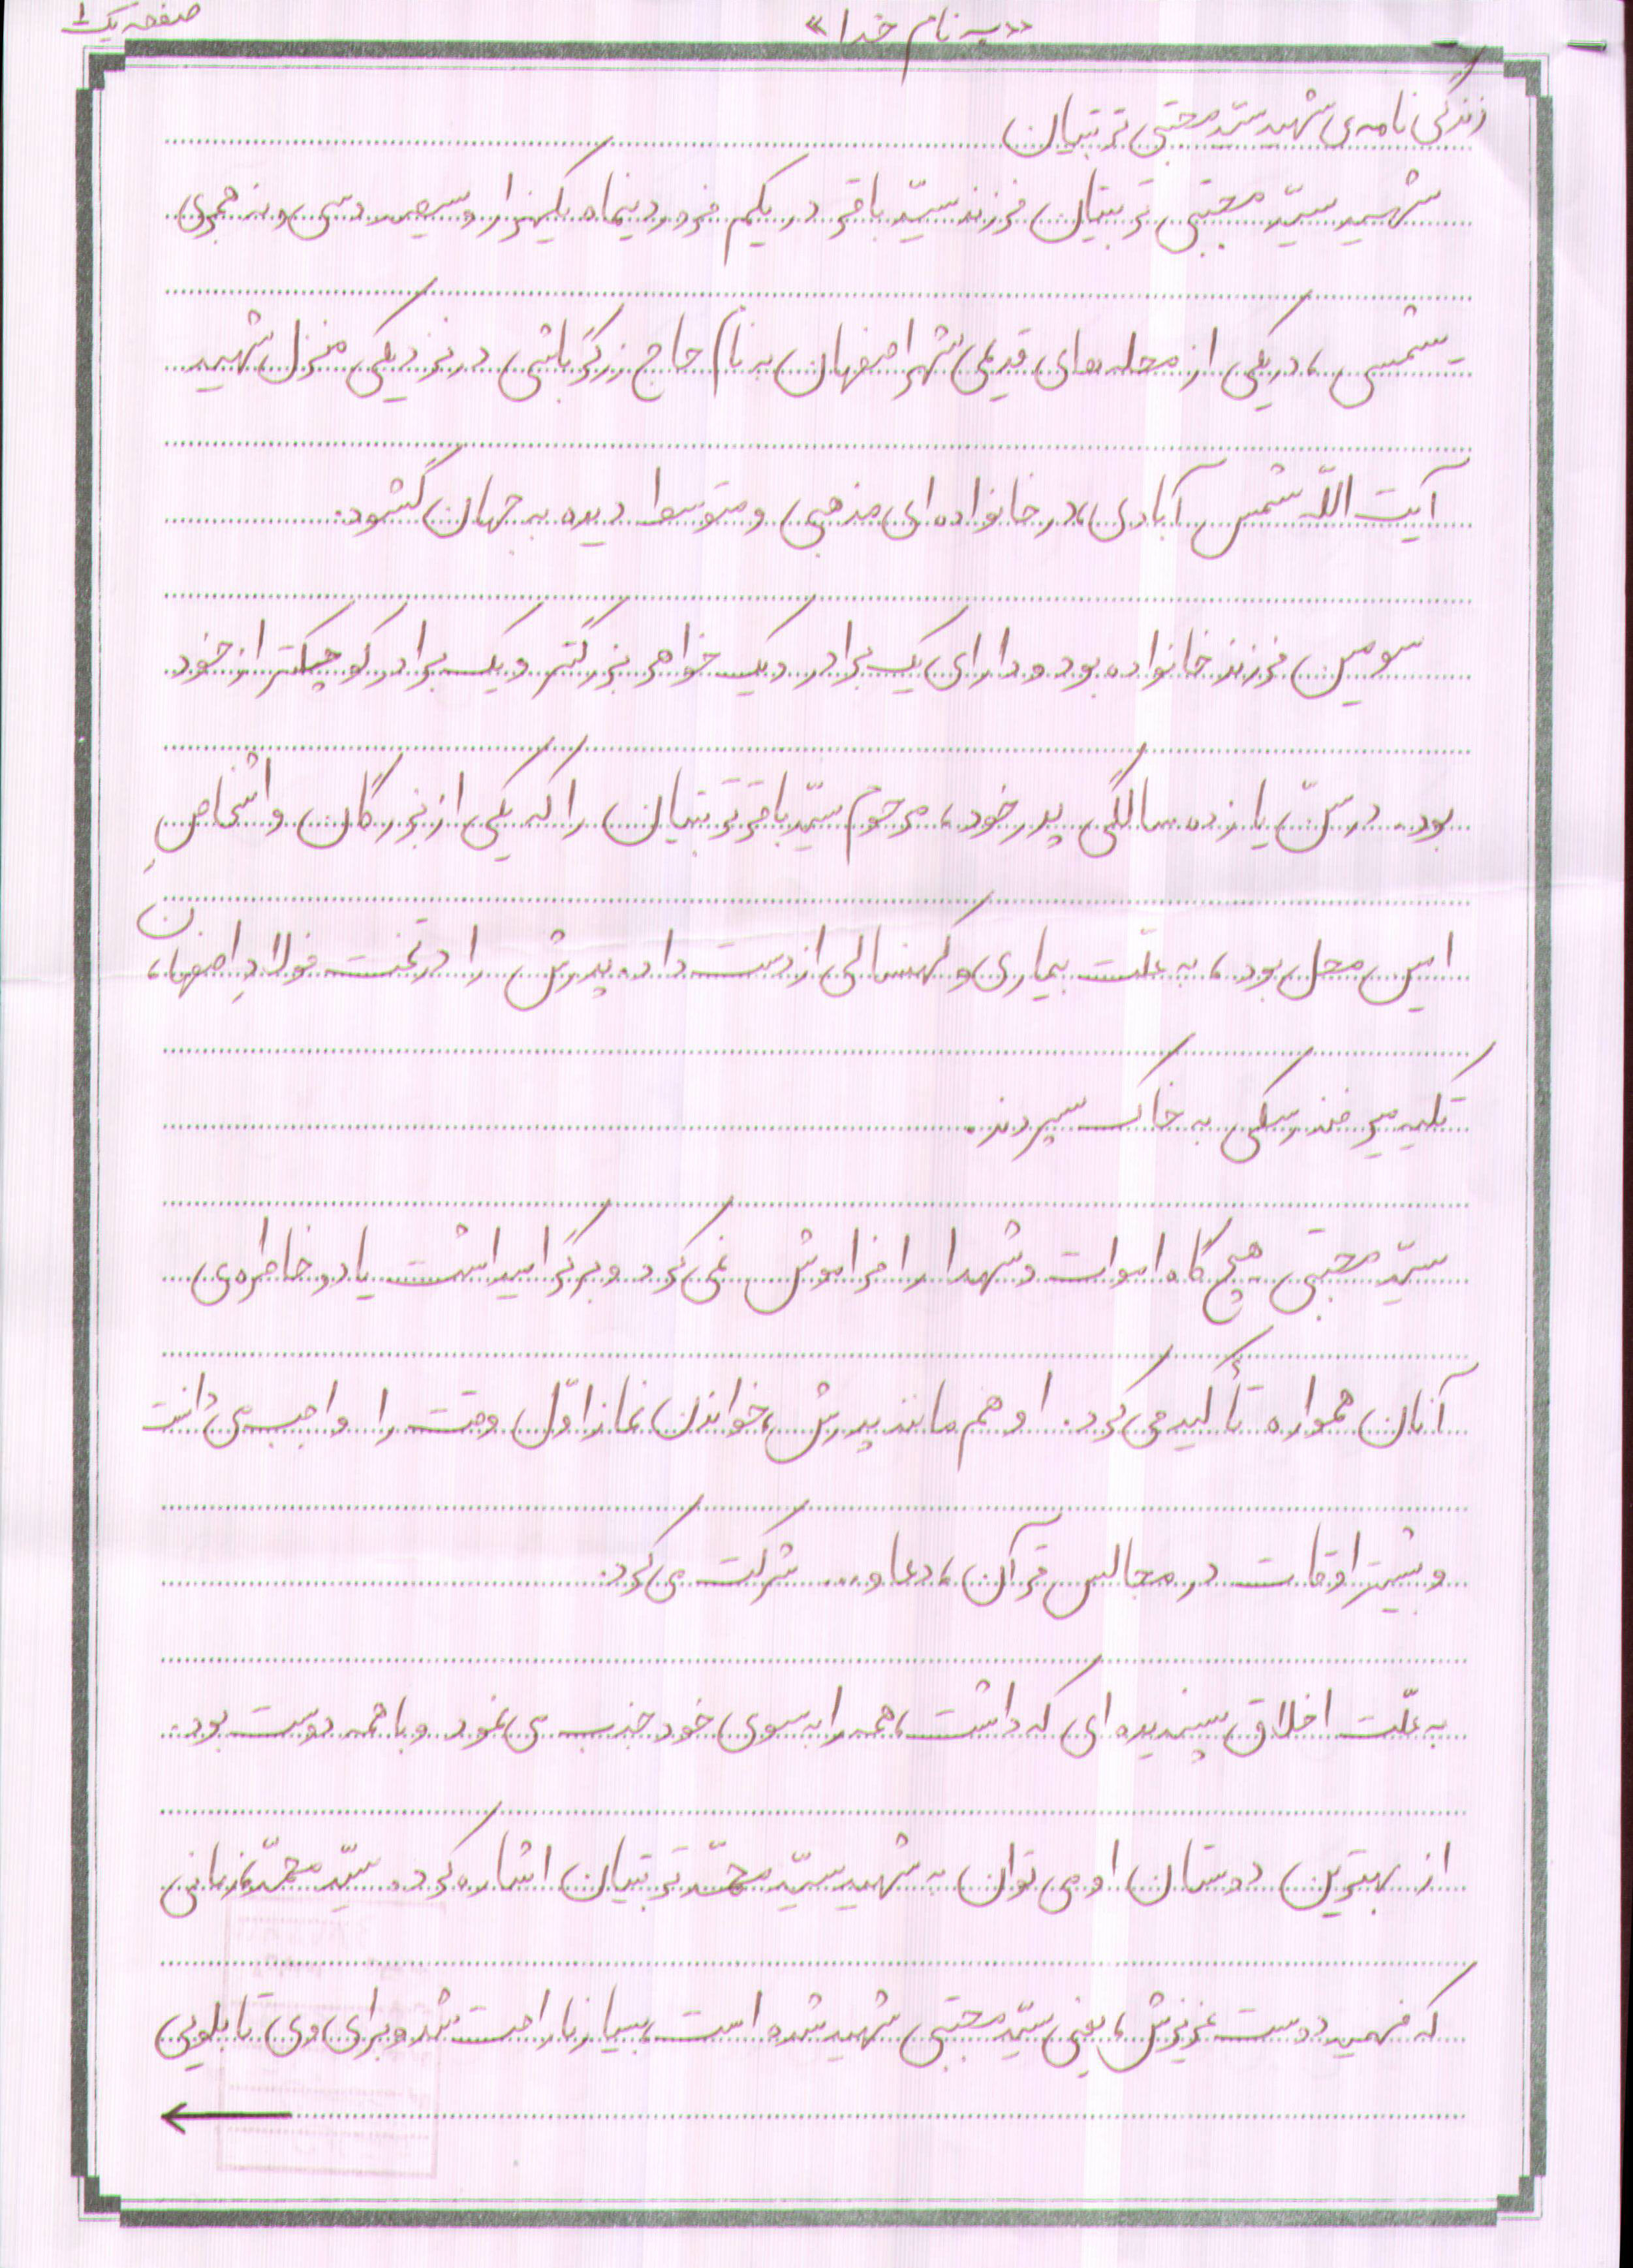 صفحه یک ۱
«به نام خدا»
زندگی نامه‌ی شهید سیّد مجتبی تربتیان
شهید سیّد مجتبی تربتیان فرزند سیّد باقر در یکم فروردینماه یکهزار و سیصد و سی و نه هجری
شمسی، در یکی از محله‌های قدیمی شهر اصفهان به نام حاج زرگرباشی در نزدیکی منزل شهید
آیت اللّه شمس آبادی، در خانواده‌ای مذهبی و متوسط دیده به جهان گشود.
سومین فرزند خانواده بود و دارای یک برادر و یک خواهر بزرگتر و یک برادر کوچکتر از خود
بود. در سنّ یازده سالگی پدر خود، مرحوم سیّد باقر تربتیان را که یکی از بزرگان و اشخاصِ
این محل بود، به علّت بیماری و کهنسالی از دست داد. پدرش را در تخت فولادِ اصفهان،
تکیه میرفندرسکی به خاک سپردند.
سیّد مجتبی هیچ گاه اموات و شهدا را فراموش نمی‌کرد و بر گرامیداشت یاد و خاطره‌ی
آنان همواره تأکید می‌کرد. او هم مانند پدرش، خواندن نماز اوّل وقت را واجب می‌دانست
و بیشتر اوقات در مجالس قرآن، دعا و... شرکت می‌کرد.
به علّت اخلاق پسندیده‌ای که داشت، همه را به سوی خود جذب می‌نمود و با همه دوست بود.
از بهترین دوستان او می‌توان به شهید سیّد محمّد تربتیان اشاره کرد. سیّد محمّد، زمانی
که فهمید دوست عزیزش، یعنی سیّد مجتبی شهید شده است، بسیار ناراحت شد و برای وی تابلویی